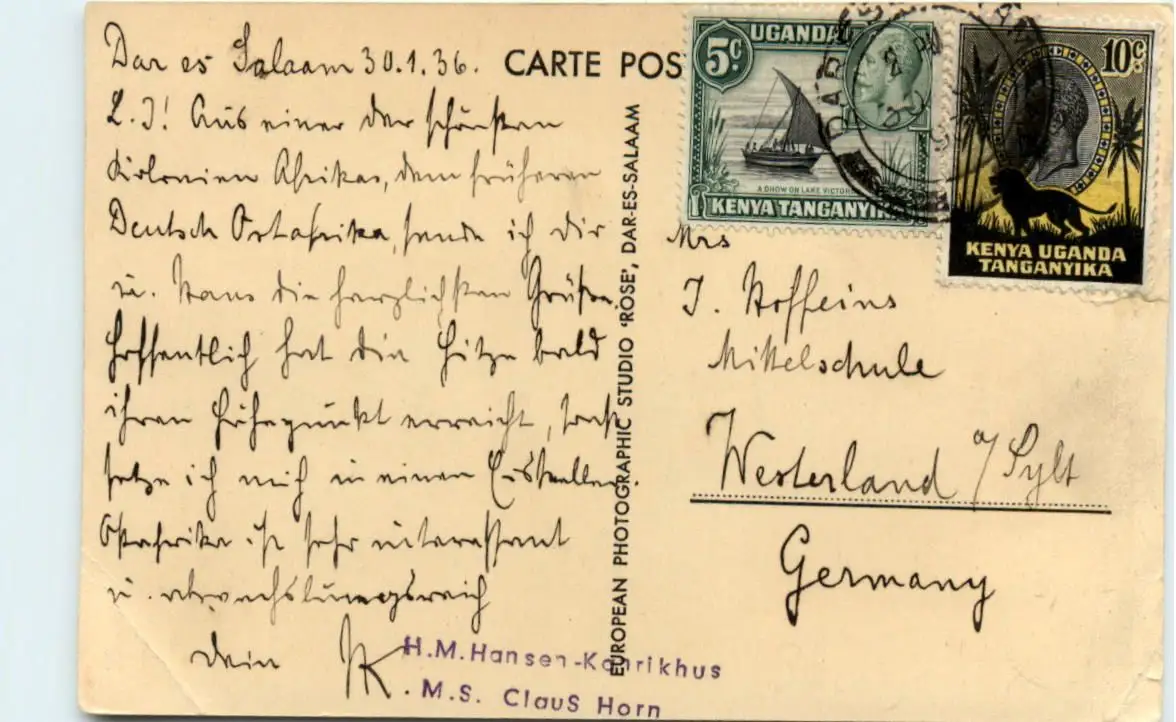 Dar es Salaam 30.1.36.
L. J! Aus einer der schönsten
Kolonien Afrikas, dem früheren
Deutsch Ostafrika, sende ich dir
u. Hans die herzlichsten Grüße.
Hoffentlich hat die Hitze bald
ihren Höhepunkt erreicht, sonst
setze ich mich in einen Eiskeller.
Ostafrika ist sehr interessant
u. abwechslungsreich
Dein
H.M.Hansen-Kogrikhus
M.S. Claus Horn
CARTE POS
EUROPEAN PHOTOGRAPHIC STUDIO 'ROSE', DAR-ES-SALAAM
5c
UGANDA
A DHOW ON LAKE VICTOR
KENYA TANGANYIKA
10c
KENYA UGANDA
TANGANYIKA
Mrs
J. Hoffeins
Mittelschule
Westerland a/Sylt
Germany